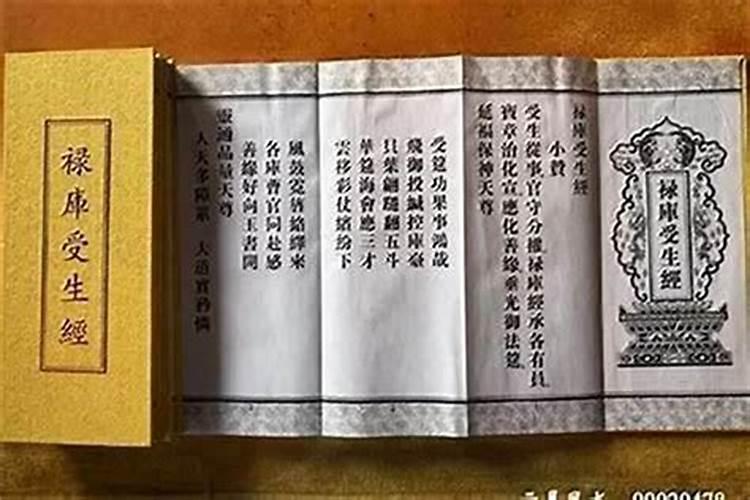 禄庫受生經
祿庫受生經
祿庫受生經
小贊
受生從事官守分權祿庫經承各有員
寶章治化宣應化善緣垂光御法筵
延福保神天尊
受筵功果事鴻哉
飛御投緘控庫臺
貝葉翩翻五斗
華筵海會應三才
雲移彩仗繽紛下
風鼓霓旌絡繹來
各庫曹官同赴感
善緣好向玉書開
靈通品量天尊
人天多障累 大道實矜憐